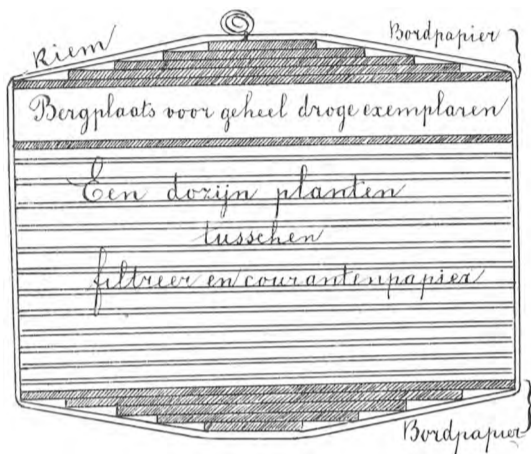 Riem
Bordpapier
Bergplaats voor geheel droge exemplaren
Een dozijn planten
tusschen
filtreer en courantenpapier
Bordpapier